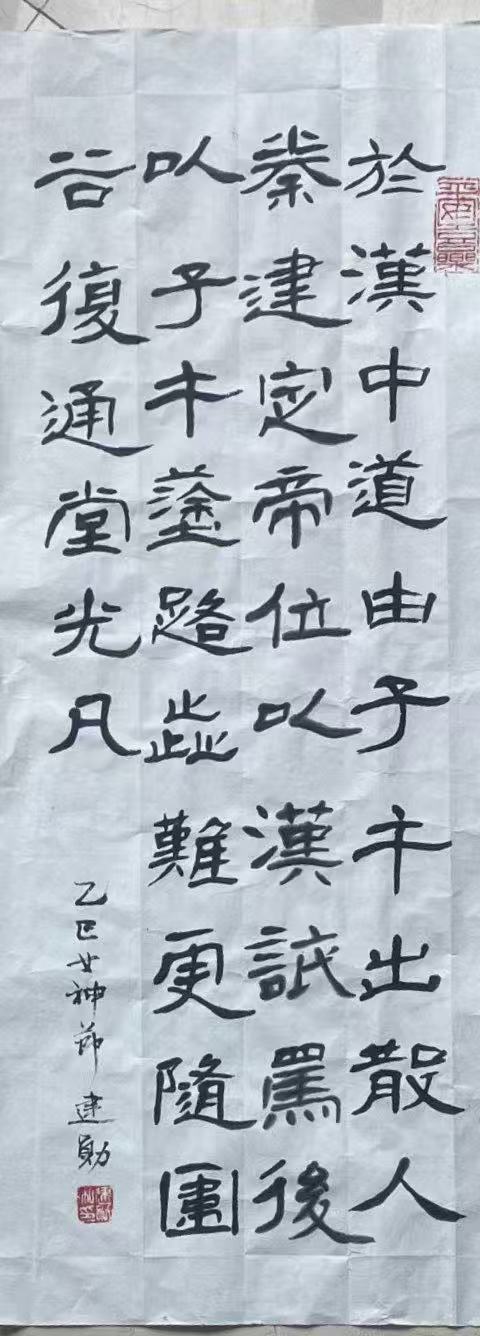 於漢中道由子午出散入
秦建定帝位以漢詆焉後
以子午塗路歰難更隨圍
谷復通堂光凡
乙巳女神節 建勛